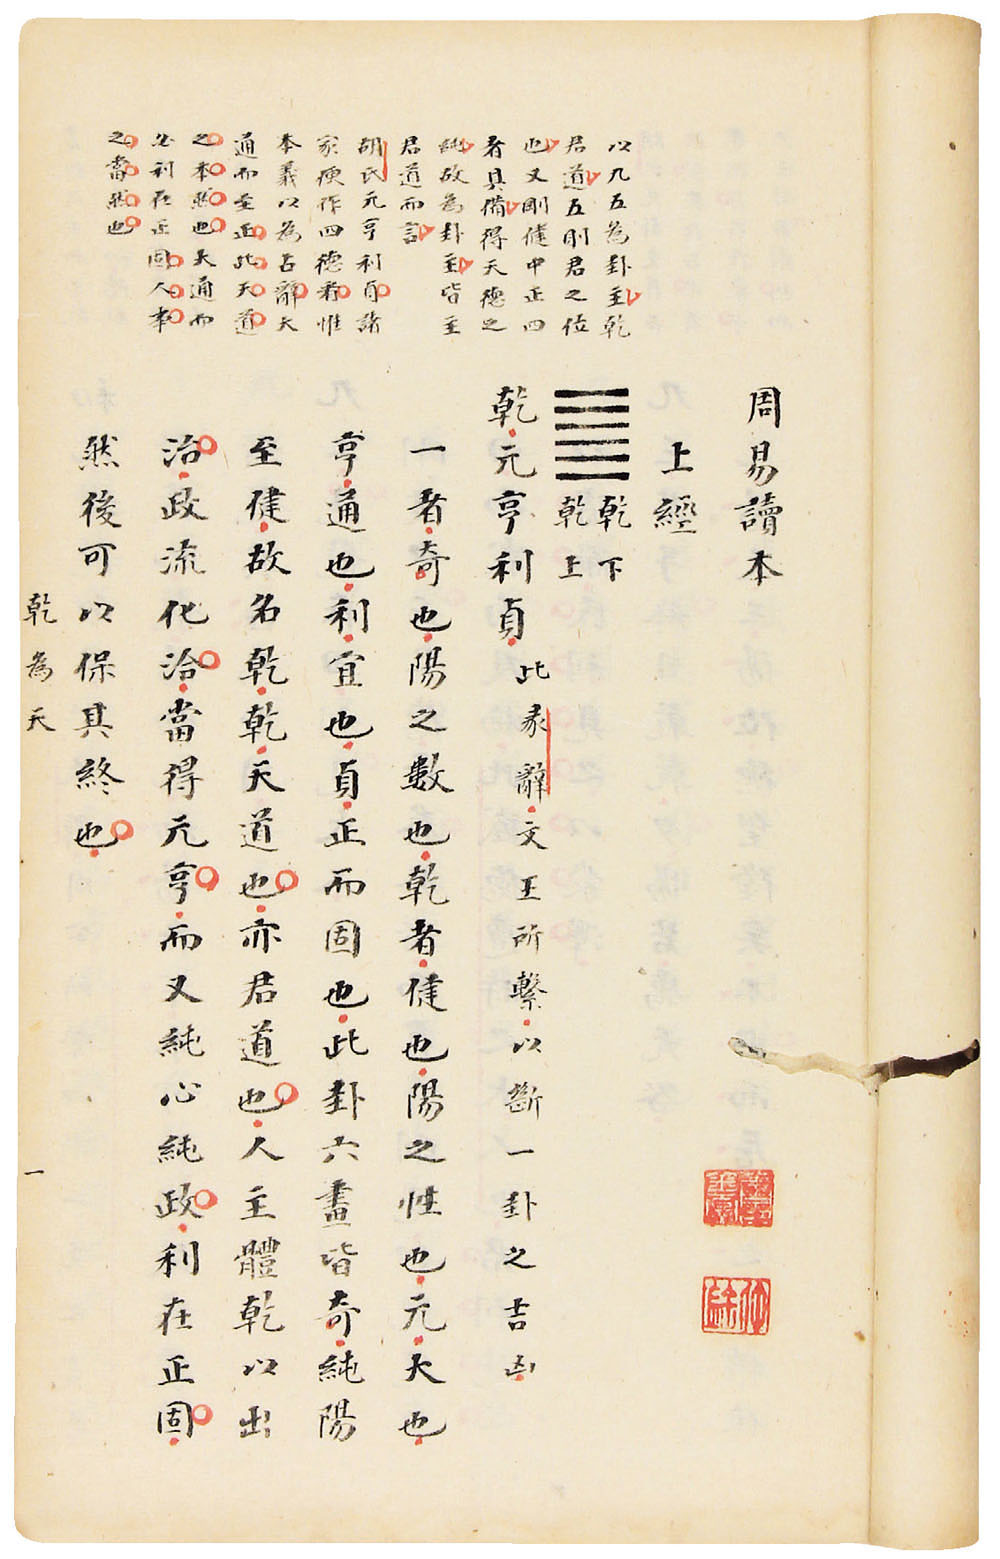 以九五為卦主乾
君道五則君之位
也又剛健中正四
者具備得天德之
純故為卦主皆主
君道而言
胡氏元亨利貞諸
家便作四德看惟
本義以為占辭大
通而至正此天道
之本然也大通而
必利在正固人事
之當然也
周易讀本
上經
乾下
乾上
乾元亨利貞此彖辭文王所繫以斷一卦之吉凶
一者奇也陽之數也乾者健也陽之性也元大也
亨通也利宜也貞正而固也此卦六畫皆奇純陽
至健故名乾乾天道也亦君道也人主體乾以出
治政流化洽當得元亨而又純心純政利在正固
然後可以保其終也
乾為天
一